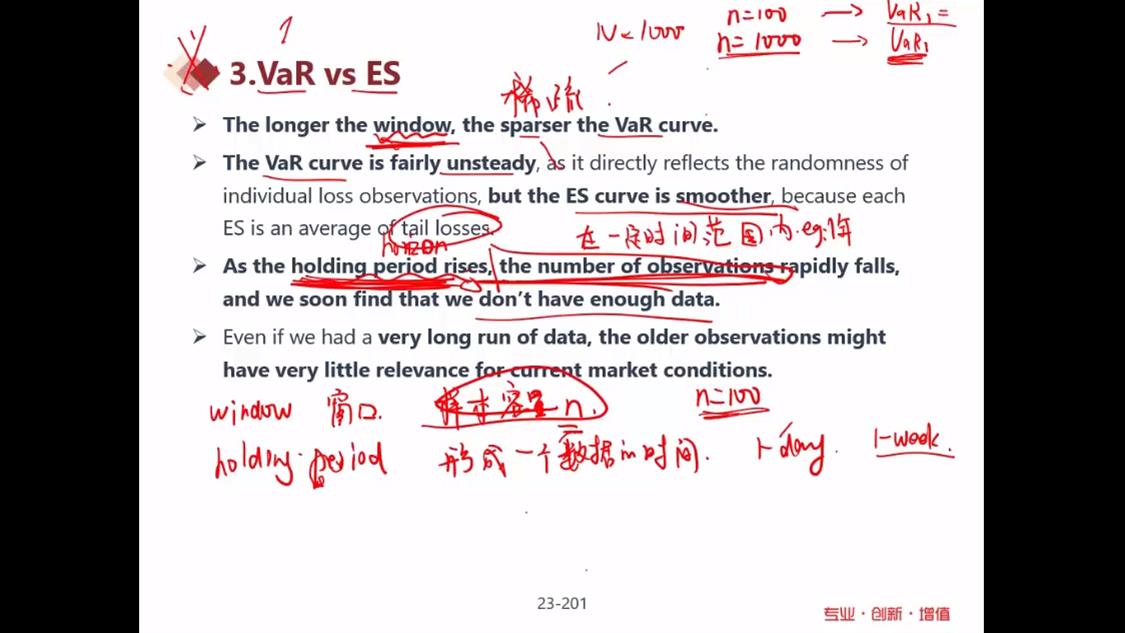 n=100 → VaR₁ =
N=1000 n=1000 → VaR₁
3.VaR vs ES
稀疏
➢ The longer the window, the sparser the VaR curve.
➢ The VaR curve is fairly unsteady, as it directly reflects the randomness of
individual loss observations, but the ES curve is smoother, because each
ES is an average of tail losses.
在一定时间范围内.eg:1年
horizon
➢ As the holding period rises, the number of observations rapidly falls,
and we soon find that we don’t have enough data.
➢ Even if we had a very long run of data, the older observations might
have very little relevance for current market conditions.
window 窗口. 样本容量 n. n=100
holding period 形成一个数据的时间. 1-day. 1-week.
23-201
专业·创新·增值